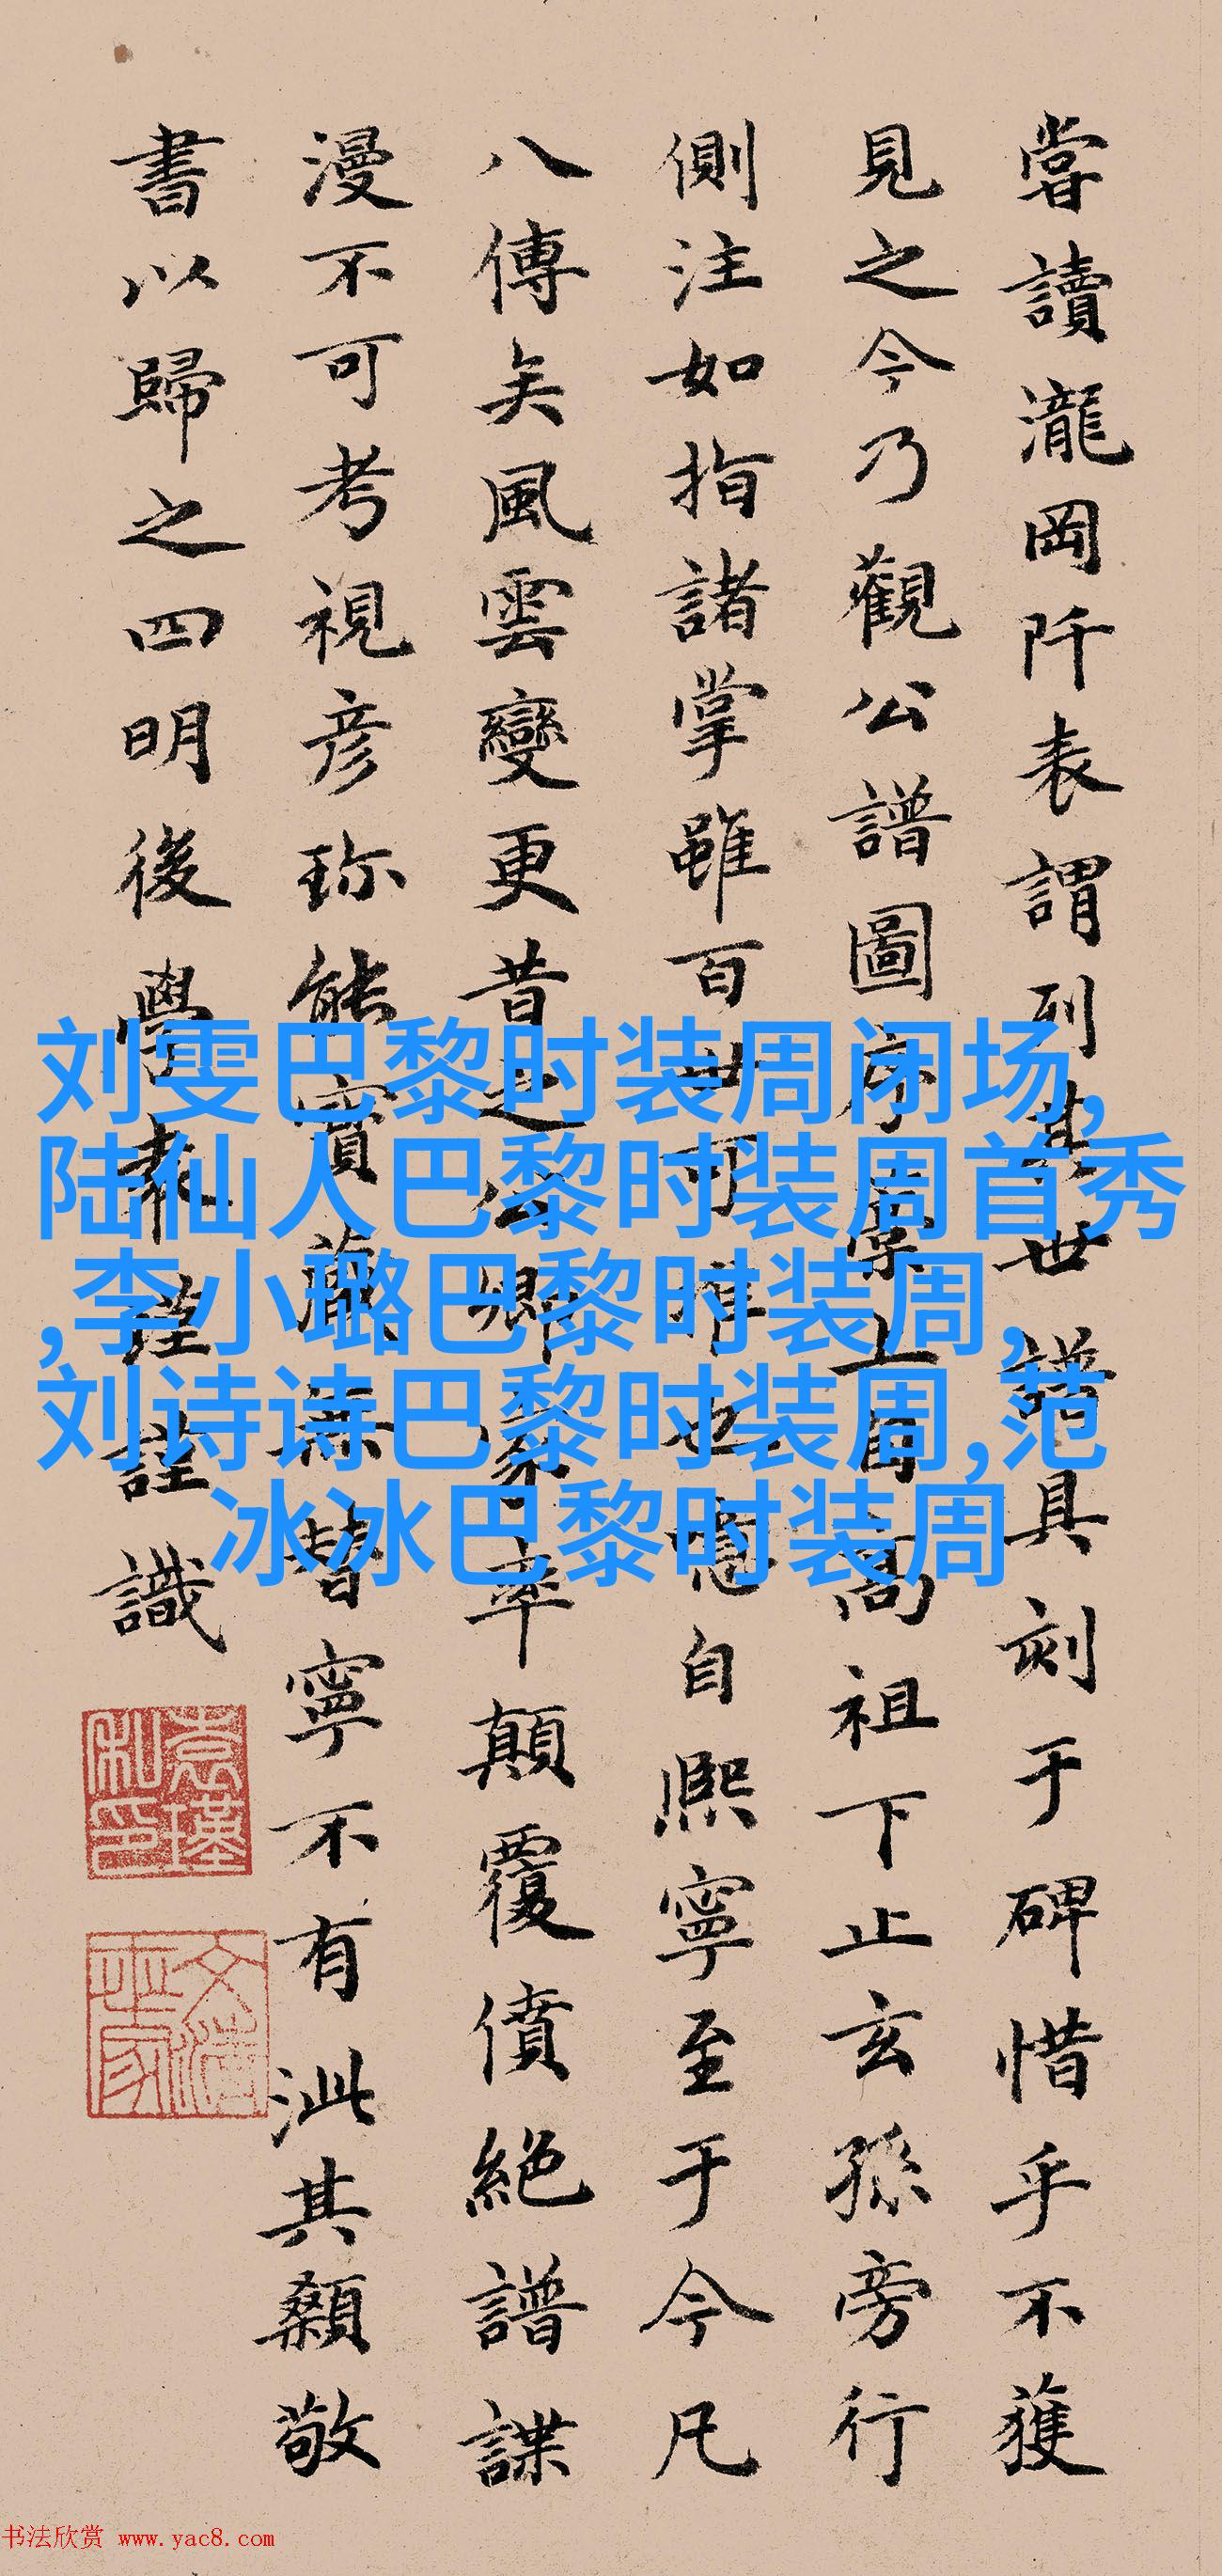 嘗讀瀧岡阡表謂列其世譜具刻于碑惜乎不獲
見之今乃觀公譜圖序藁上自高祖下止玄孫旁行
側注如指諸掌雖百世可推也憶自熙寧至于今凡
八傳矣風雲變更昔之公卿家率顛覆僨絕譜諜
漫不可考視彥珎能寶藏無替寧不有泚其顙敬
書以歸之四明後學袁瑾謹識
刘雯巴黎时装周闭场,
陆仙人巴黎时装周首秀
,李小璐巴黎时装周,
刘诗诗巴黎时装周,范
冰冰巴黎时装周
袁瓘私印
书法欣赏 www.yac8.com